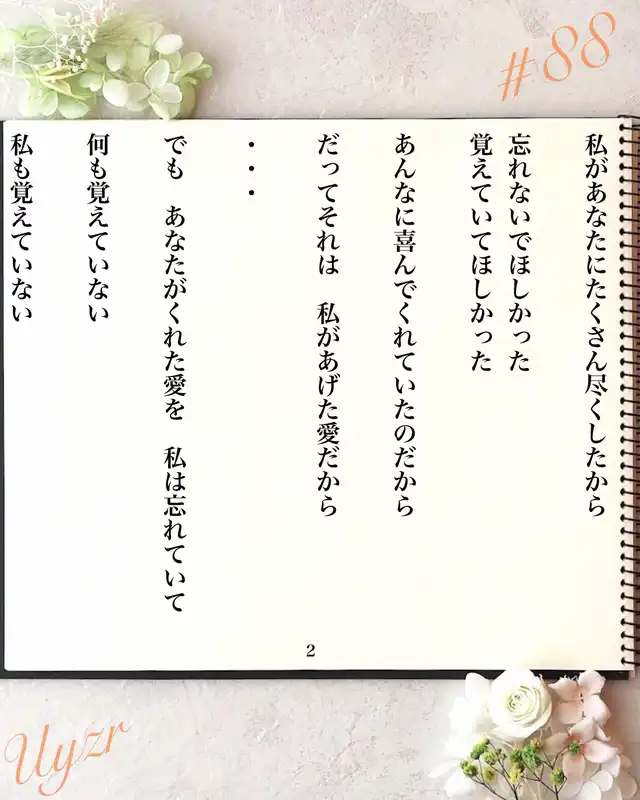 #88
私があなたにたくさん尽くしたから
忘れないでほしかった
覚えていてほしかった
あんなに喜んでくれていたのだから
だってそれは 私があげた愛だから
・・・
でも あなたがくれた愛を 私は忘れていて
何も覚えていない
私も覚えていない
2
Uyzr